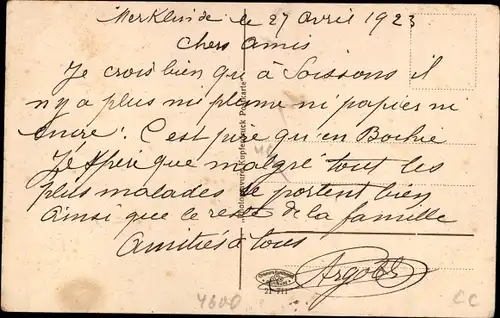 Merklinde le 27 avril 1923
Chers Amis
Je crois bien que à Soissons il
n'y a plus ni plume ni papier ni
encre! C'est pire qu'en Bochie
J'éspère que malgré tout les
plus malades se portent bien
ainsi que le reste de la famille
Amitiés à tous
Kupfertiefdruck Postkarte
21 711
4600
CC